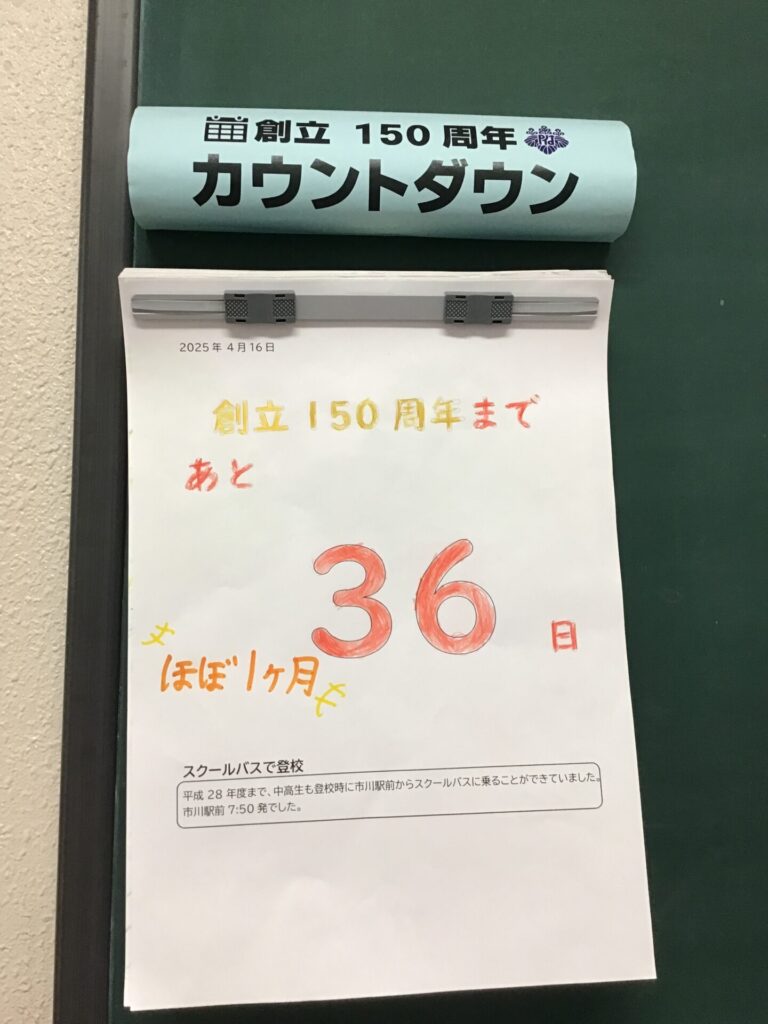 創立 150 周年
カウントダウン
2025年 4月16日
創立 150 周年まで
あと
36
日
ほぼ1ヶ月
スクールバスで登校
平成 28 年度まで、中高生も登校時に市川駅前からスクールバスに乗ることができていました。
市川駅前 7:50 発でした。